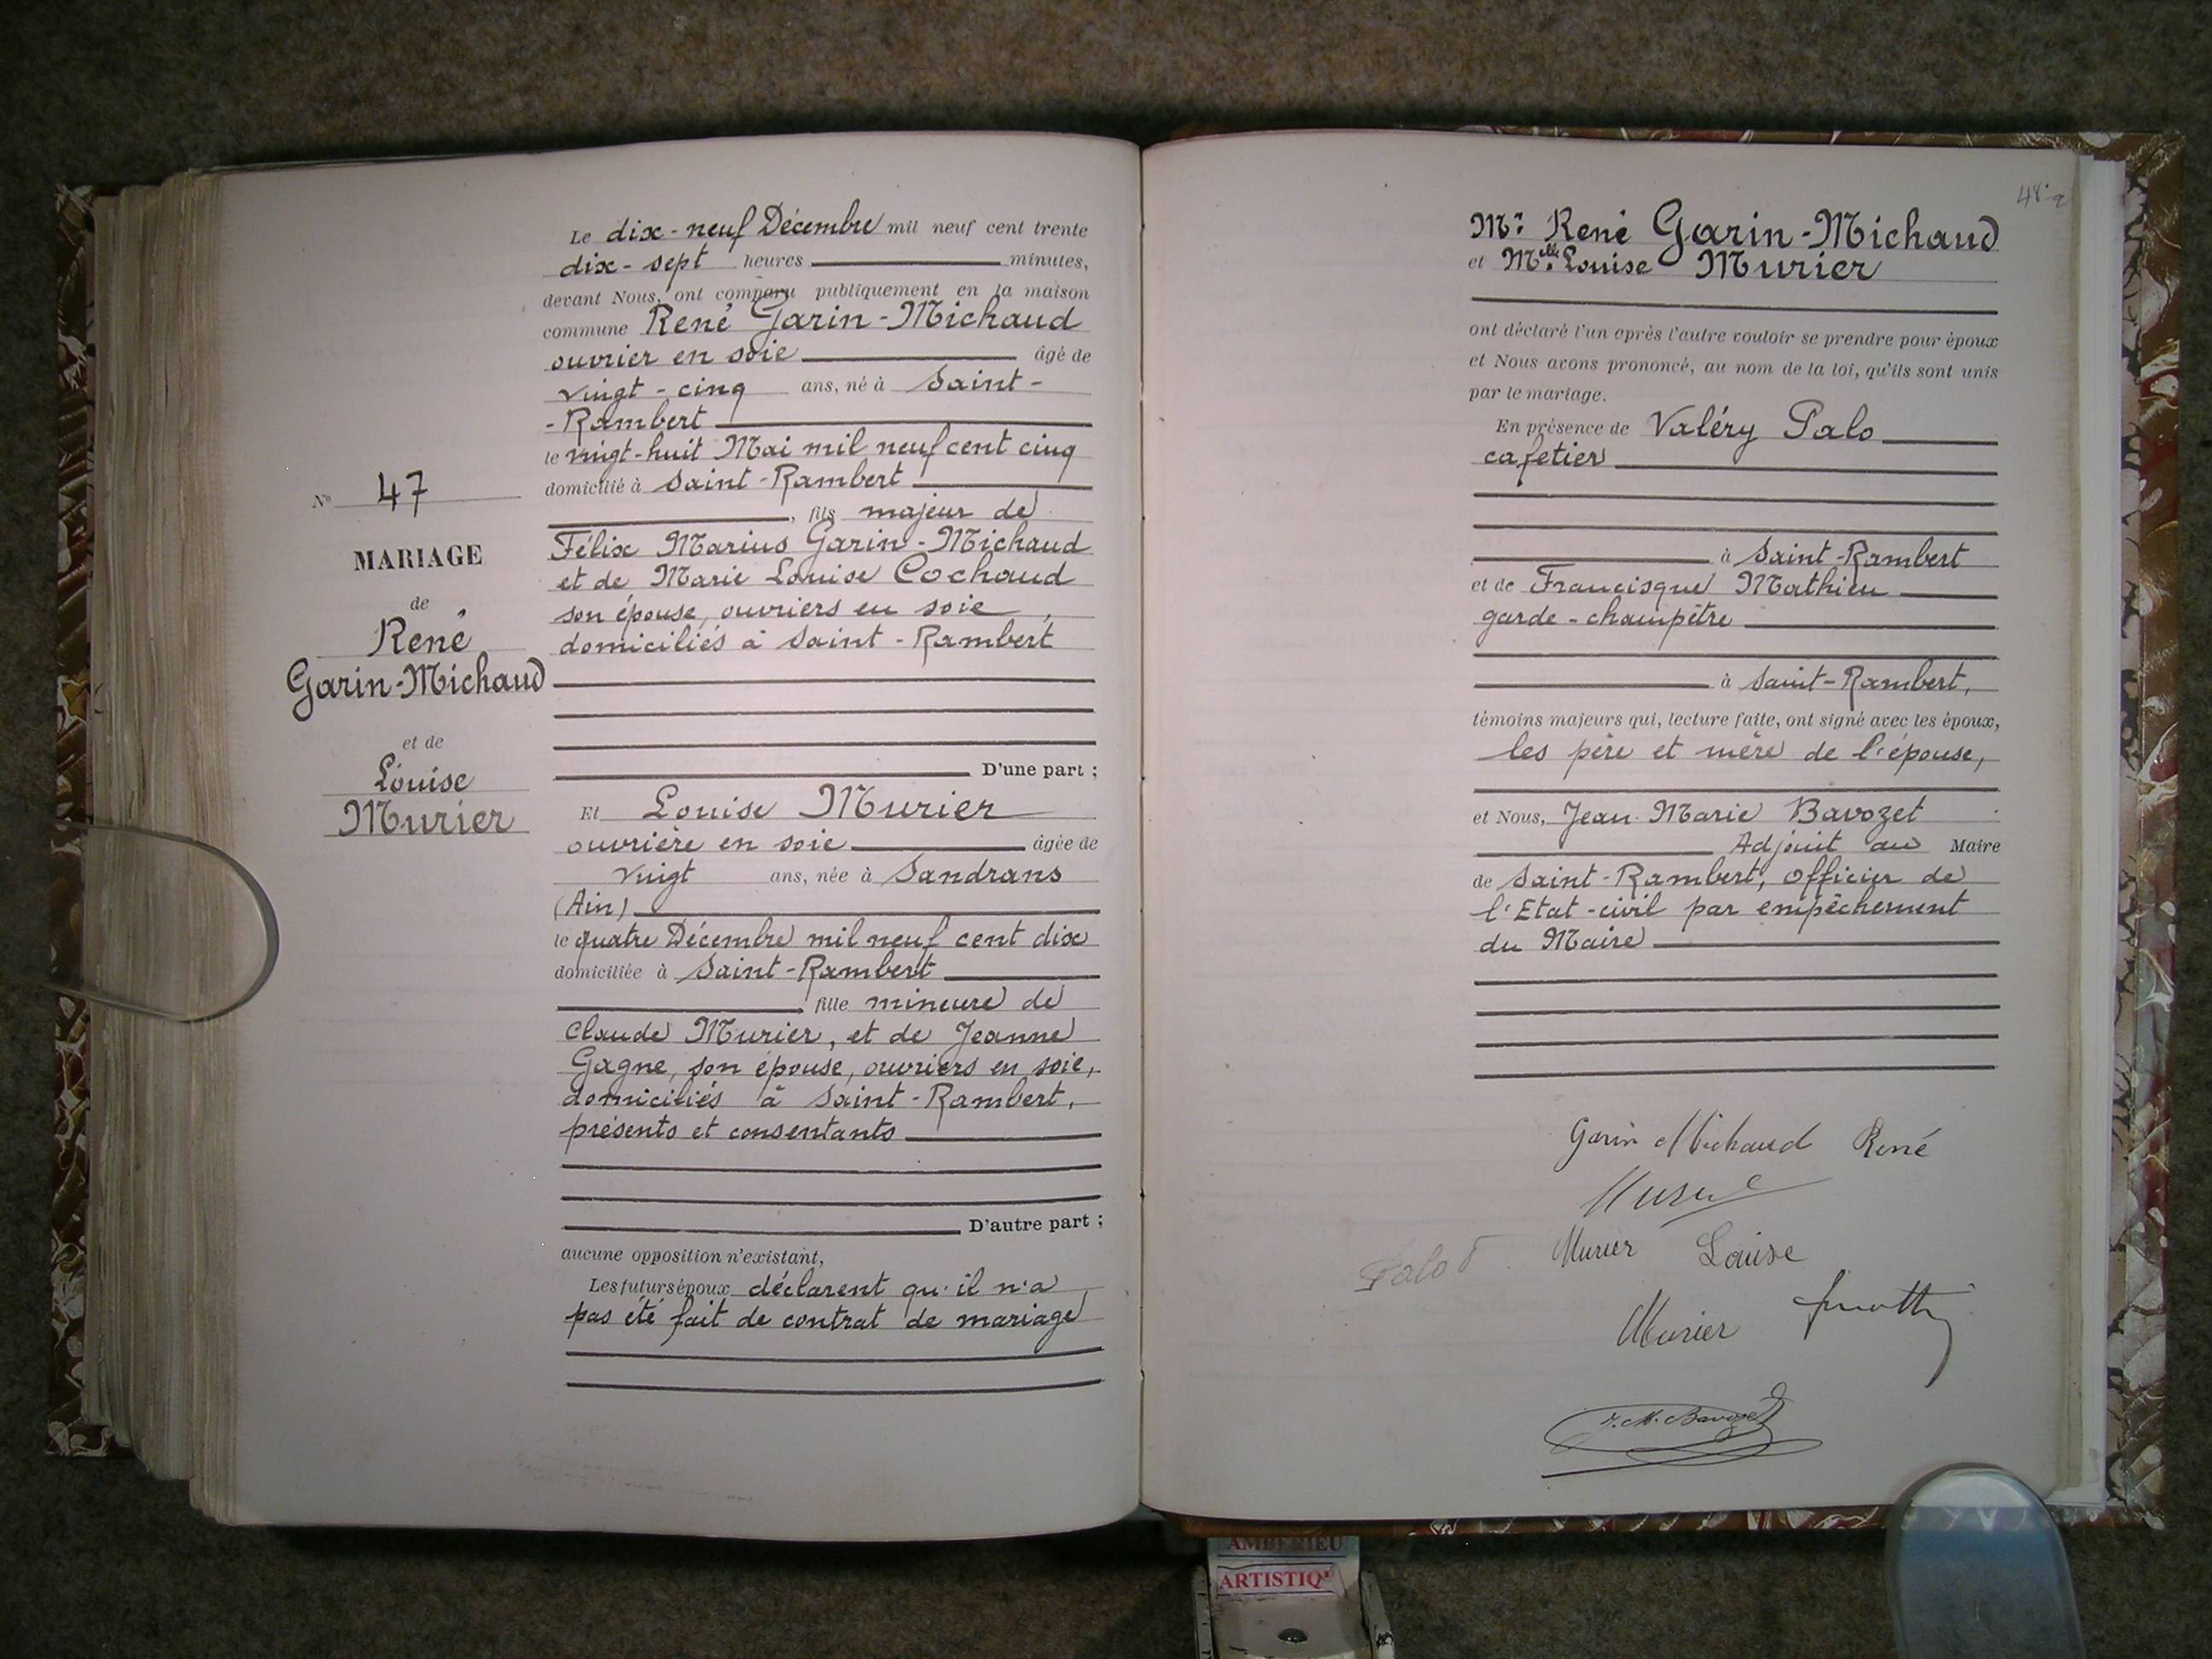 Le dix-neuf Décembre mil neuf cent trente
dix-sept heures minutes,
devant Nous, ont comparu publiquement en la maison
commune René Garin-Michaud
ouvrier en soie âgé de
vingt-cinq ans, né à Saint-
-Rambert
le vingt-huit Mai mil neuf cent cinq
domicilié à Saint-Rambert
, fils majeur de
Félix Marius Garin-Michaud
et de Marie Louise Cochaud
son épouse, ouvriers en soie,
domiciliés à Saint-Rambert
D'une part ;
Nº 47
MARIAGE
de
René
Garin-Michaud
et de
Louise
Murier
Et Louise Murier
ouvrière en soie âgée de
vingt ans, née à Sandrans
(Ain)
le quatre Décembre mil neuf cent dix
domiciliée à Saint-Rambert
, fille mineure de
Claude Murier, et de Jeanne
Gagne, son épouse, ouvriers en soie,
domiciliés à Saint-Rambert,
présents et consentants
D'autre part ;
aucune opposition n'existant,
Les futurs époux déclarent qu'il n'a
pas été fait de contrat de mariage
Mr. René Garin-Michaud
et Melle. Louise Murier
ont déclaré l'un après l'autre vouloir se prendre pour époux
et Nous avons prononcé, au nom de la loi, qu'ils sont unis
par le mariage.
En présence de Valéry Palo
cafetier
à Saint-Rambert
et de Francisque Mathieu
garde-champêtre
à Saint-Rambert,
témoins majeurs qui, lecture faite, ont signé avec les époux,
les père et mère de l'épouse,
et Nous, Jean Marie Bavozet
Adjoint au Maire
de Saint-Rambert, officier de
l'Etat-civil par empêchement
du Maire
Garin Michaud René
Murier Louise
Palo
Murier
J. M. Bavozet
AMBERIEU
ARTISTIQ